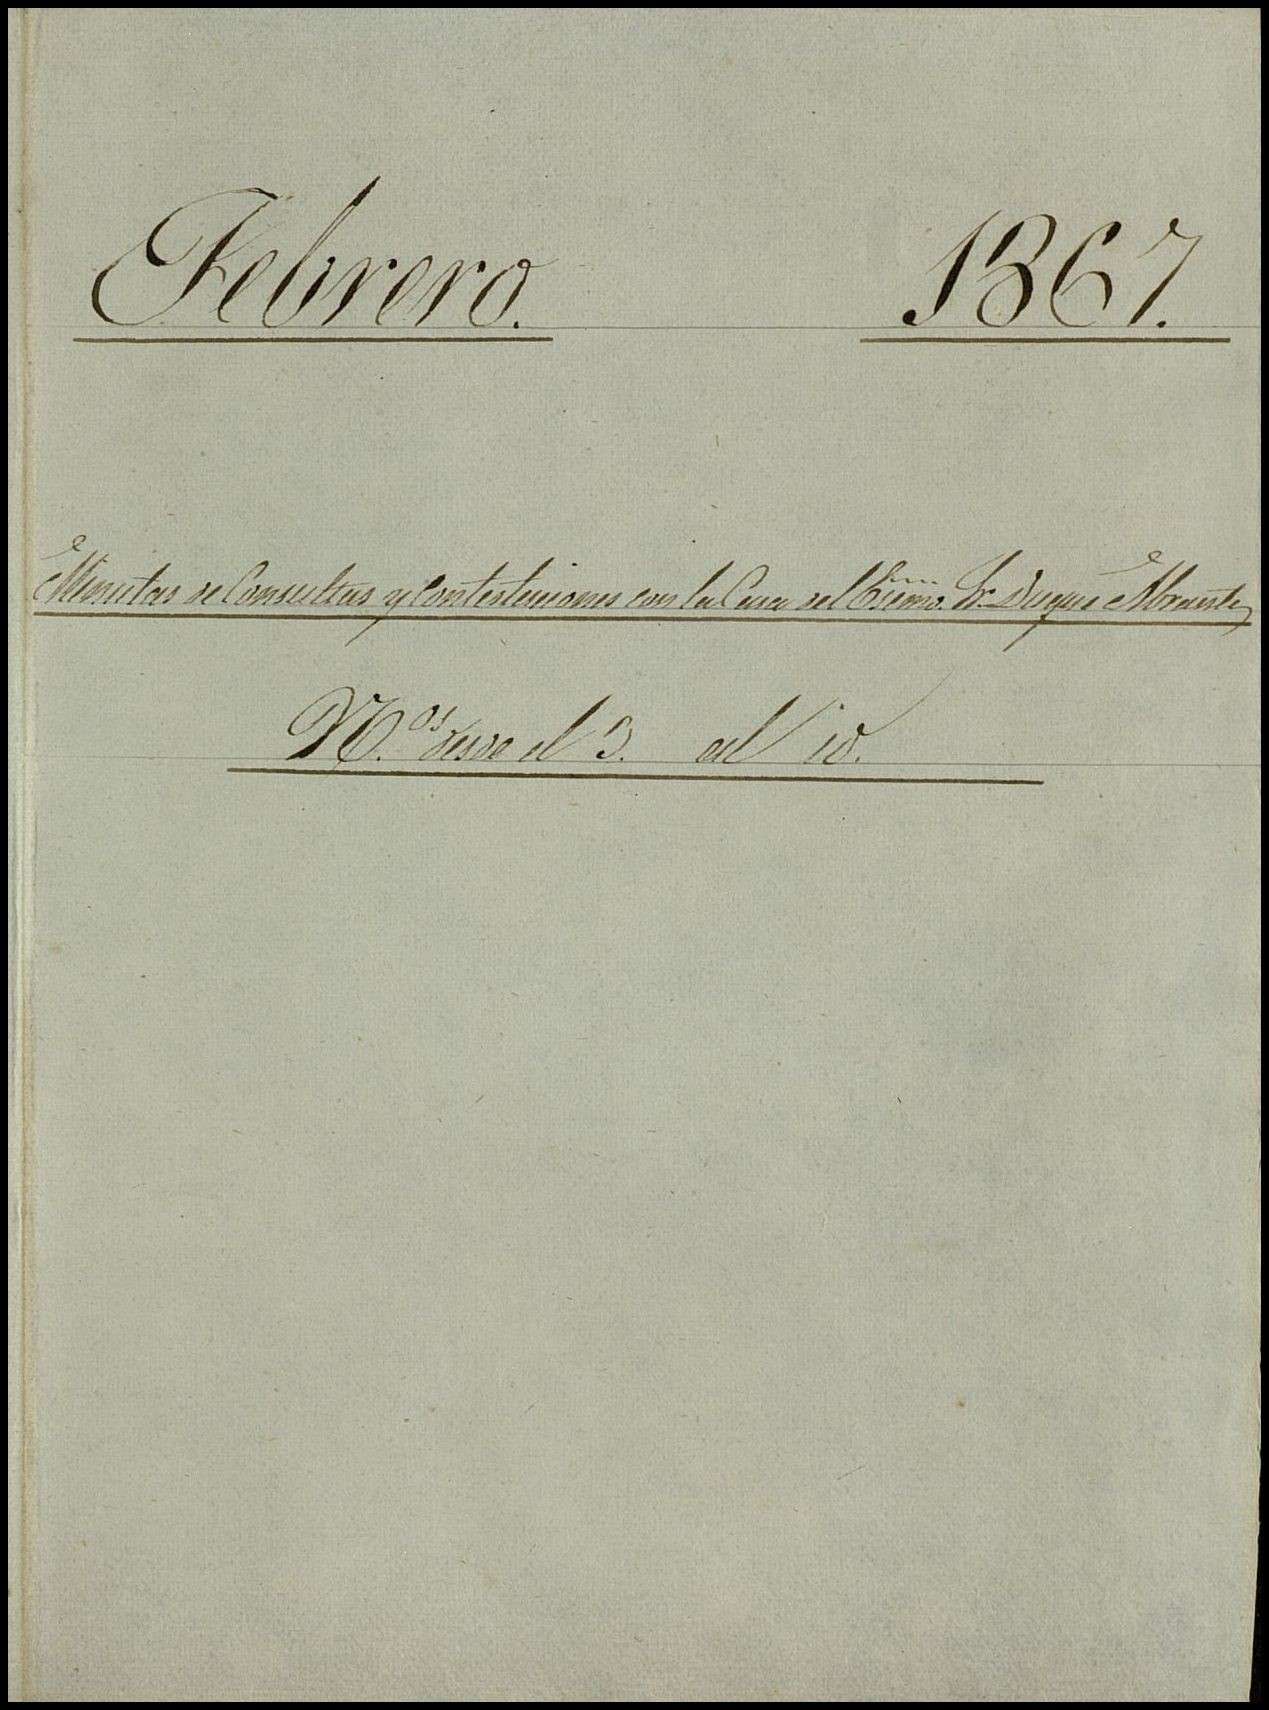 Febrero. 1867.
Minutas de Consultas y Contestaciones con la Casa del Exmo. Sr. Duque Abrantes
N.os desde el 3. al 10.